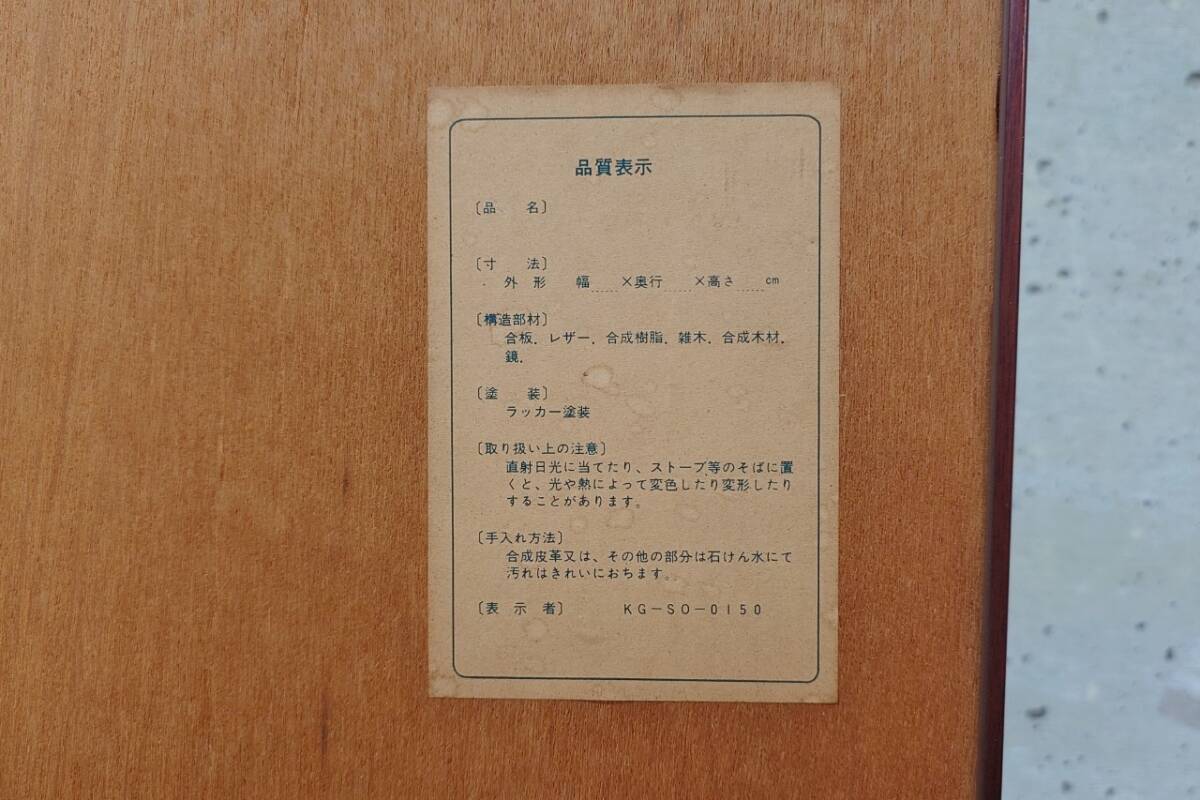 品質表示
〔品　名〕
〔寸　法〕
外 形　幅.....×奥行.....×高さ.....cm
〔構造部材〕
合板．レザー．合成樹脂．雑木．合成木材．
鏡．
〔塗　装〕
ラッカー塗装
〔取り扱い上の注意〕
直射日光に当てたり、ストーブ等のそばに置
くと、光や熱によって変色したり変形したり
することがあります。
〔手入れ方法〕
合成皮革又は、その他の部分は石けん水にて
汚れはきれいにおちます。
〔表 示 者〕　KG－SO－0150